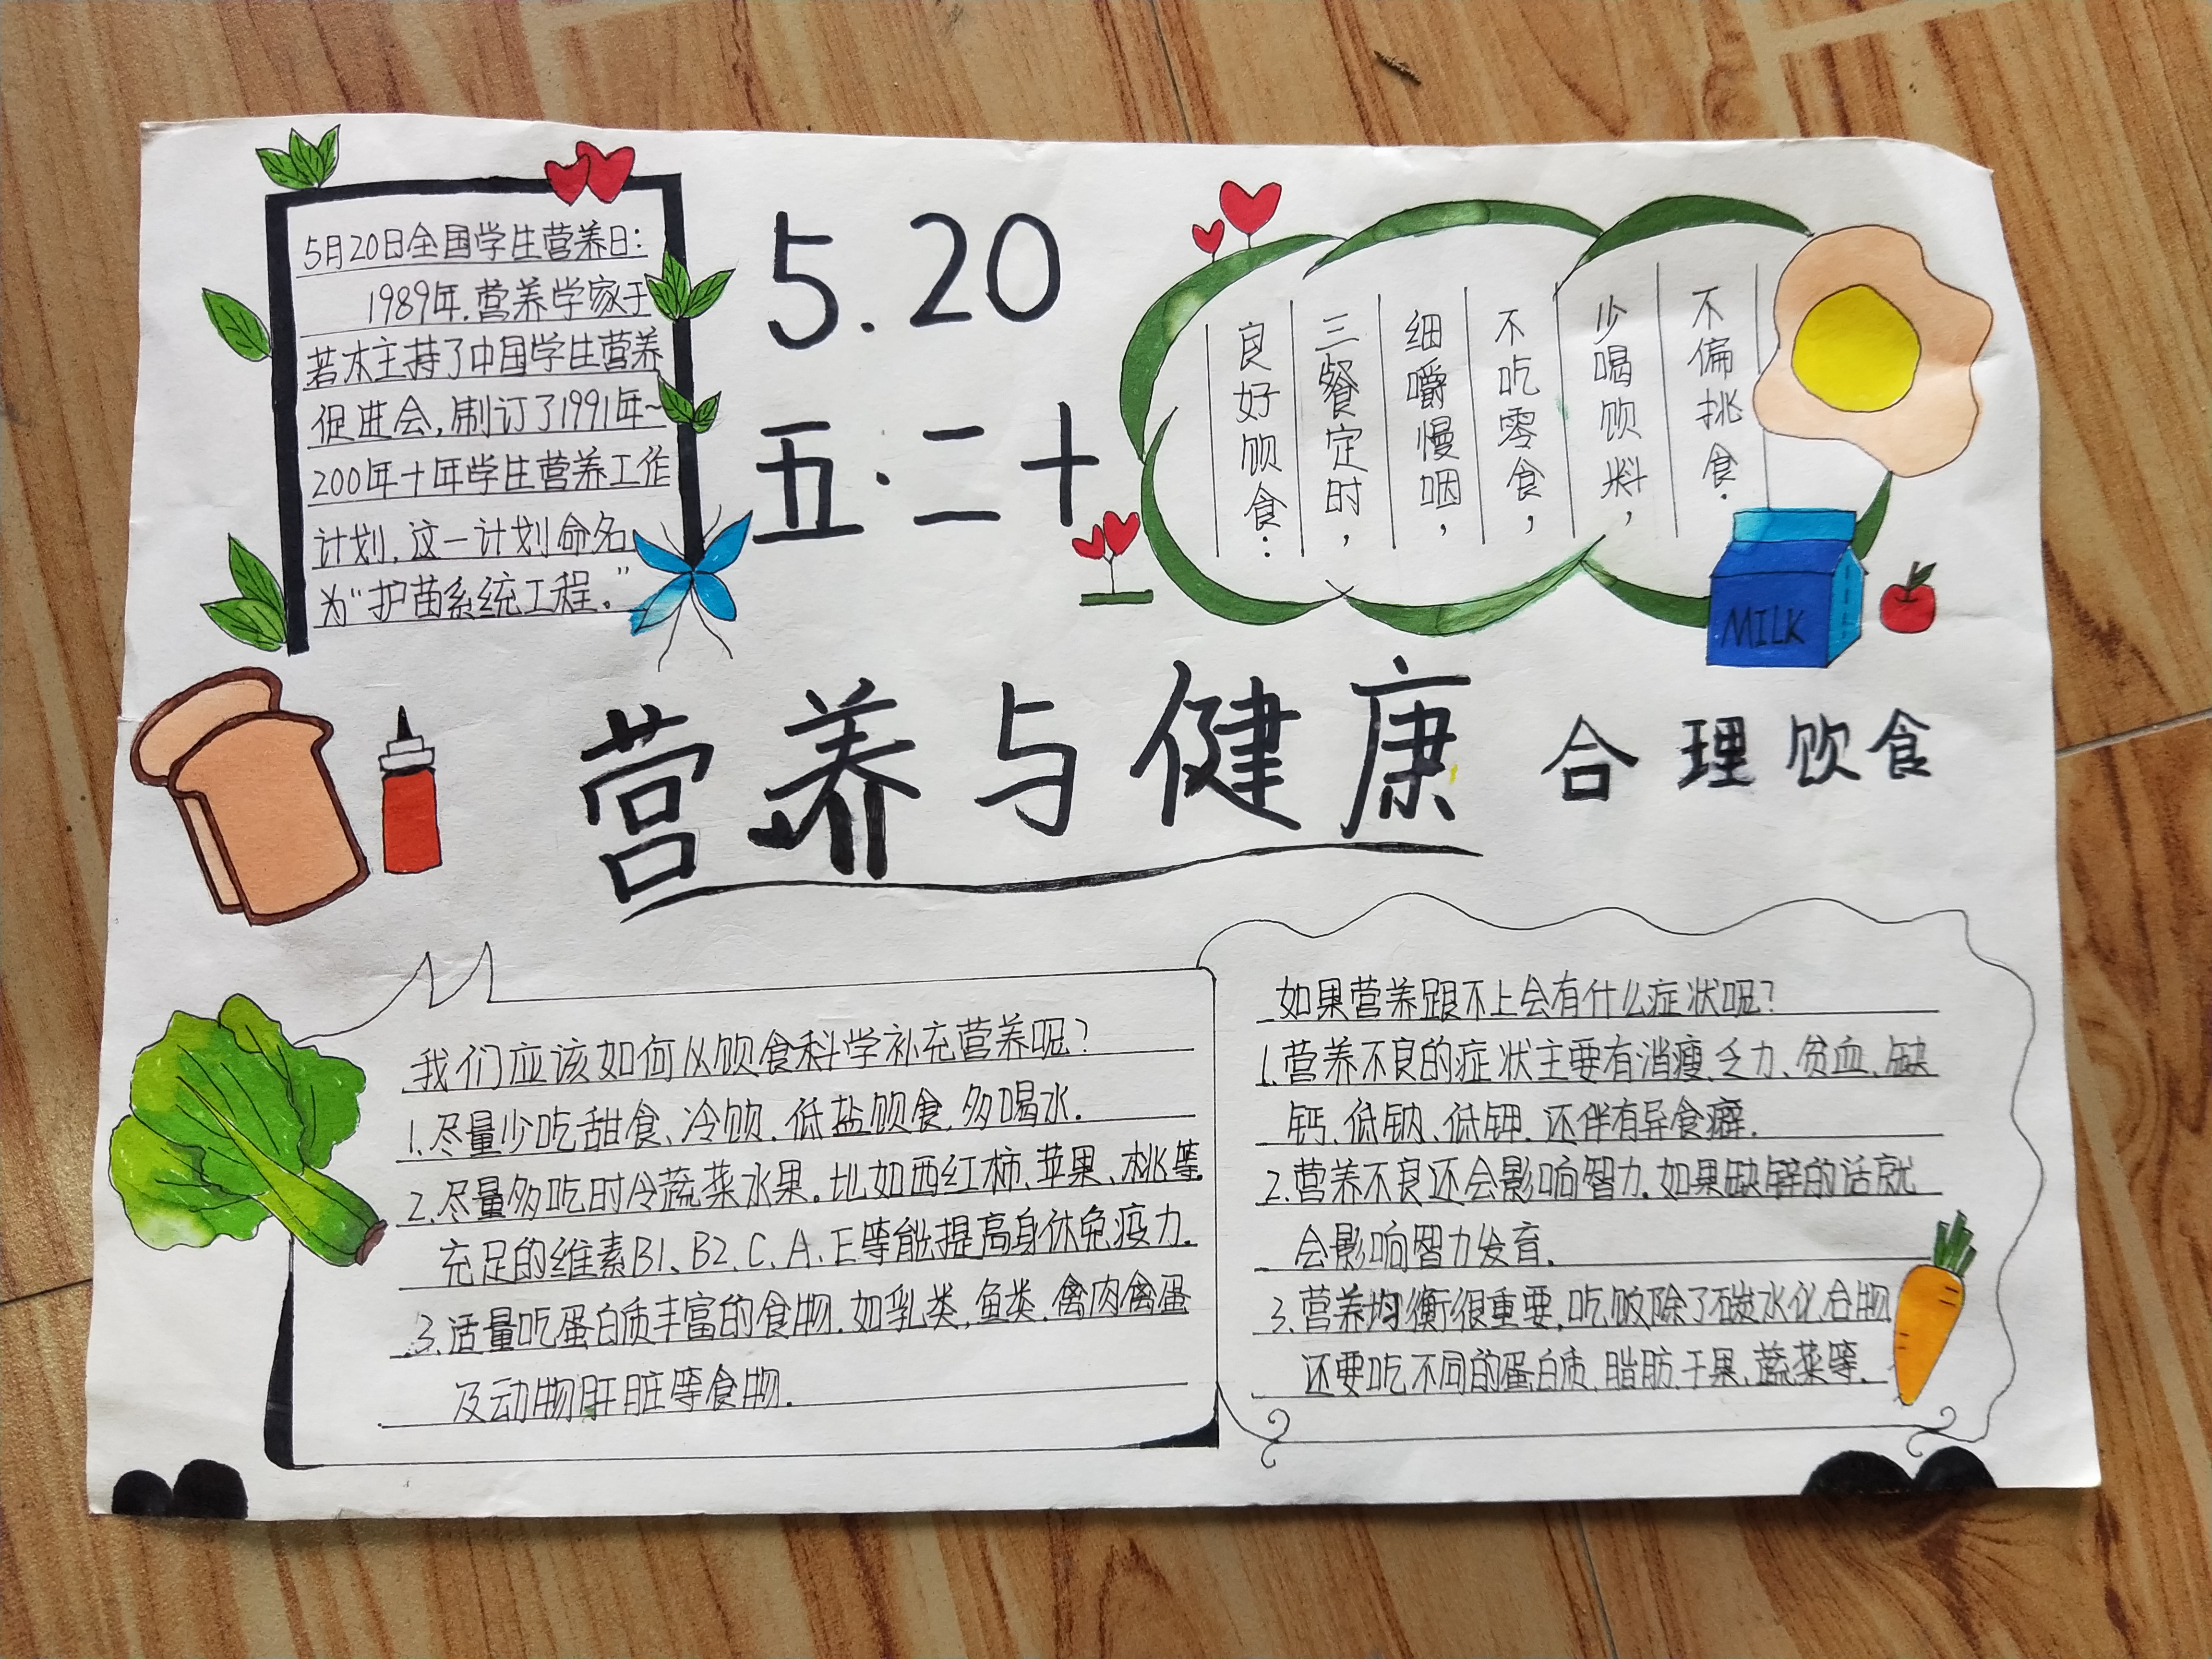 5月20日全国学生营养日:
1989年.营养学家于
若木主持了中国学生营养
促进会,制订了1991年~
200年十年学生营养工作
计划.这一计划命名
为“护苗系统工程.”
5.20
五.二十
良好饮食:
三餐定时,
细嚼慢咽,
不吃零食,
少喝饮料,
不偏挑食.
MILK
营养与健康
合理饮食
我们应该如何从饮食科学补充营养呢?
1.尽量少吃甜食、冷饮.低盐饮食.多喝水.
2.尽量多吃时令蔬菜水果.比如西红柿、苹果、桃等.
充足的维素B1、B2、C、A、E等能提高身体免疫力.
3.适量吃蛋白质丰富的食物.如乳类,鱼类.禽肉禽蛋
及动物肝脏等食物.
如果营养跟不上会有什么症状呢?
1.营养不良的症状主要有消瘦.乏力、贫血、缺
钙、低钠、低钾.还伴有异食癖.
2.营养不良还会影响智力.如果缺锌的话就
会影响智力发育.
3.营养均衡很重要,吃饭除了碳水化合物.
还要吃不同的蛋白质.脂肪.干果、蔬菜等.